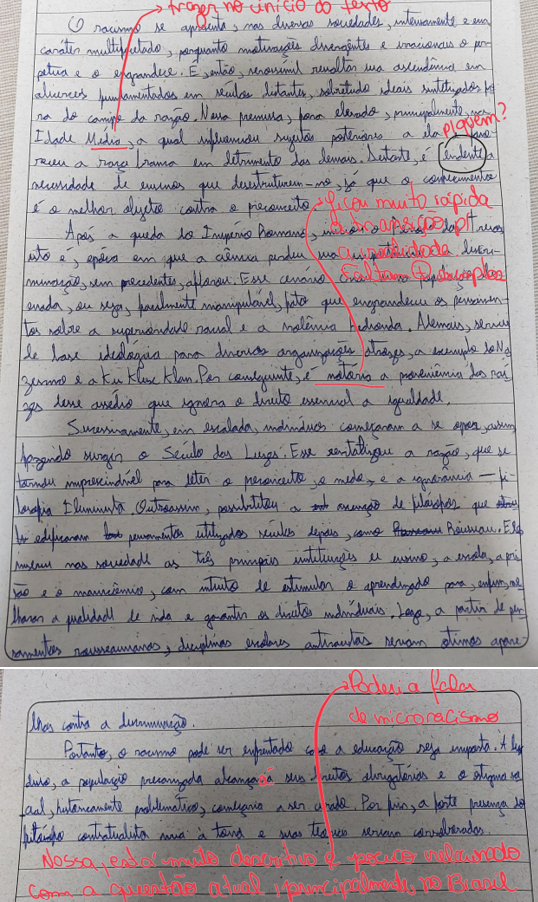 trazer no início do texto
O racismo se apresenta, nas diversas sociedades, intensamente e em
caráter multifacetado, porquanto motivações divergentes e irracionais o per-
petua e o engrandece. É, então, verossímil ressaltar sua ascendência em
alicerces fundamentados em séculos distantes, sobretudo ideais sintetizados fo
ra do campo da razão. Nessa premissa, fora elevado, principalmente, na
Idade Média, a qual influenciou sujeitos posteriores a ela
p/ quem?
a raça branca em detrimento das demais. Destarte, é evidente a
necessidade de ensinos que desestruturem-no, já que o conhecimento
é o melhor objeto contra o preconceito.
ficou muito rápida
Após a queda do Império Romano,
a transição p/
uto e, época em que a ciência perdeu sua
atualidade
minação, sem precedentes, aflorou. Esse cenário
enada, ou seja, facilmente manipulável, fato que engrandeceu os pensamen-
tos sobre a superioridade racial e a violência hedionda. Ademais, serviu
de base ideológica para diversas organizações atrozes, a exemplo do Na
zismo e a Ku Klux Klan. Por conseguinte, é notória a proveniência das raí
zes desse assédio que ignora o direito essencial a igualdade.
Sucessivamente, em escalada, indivíduos começaram a se opor, assim,
fazendo surgir o Século das Luzes. Esse centralizou a razão, que se
tornou imprescindível para deter o preconceito, o medo, e a ignorância — fi-
losofia Iluminista. Outrossim, possibilitou a ascensão de filósofos que
edificaram pensamentos utilizados séculos depois, como Rousseau. Ele
nas sociedade as três principais instituições de ensino, a escola, a pri
são e o manicômio, com intuito de estimular o aprendizado para, enfim, me
lhorar a qualidade de vida e garantir os direitos individuais. Logo, a partir de pen
samentos rousseaunianos, disciplinas escolares antirracistas seriam ótimos apare-
lhos contra a discriminação.
Poderia falar
de microracismo
Portanto, o racismo pode ser enfrentado caso a educação seja imposta. A
duro, a população precarizada alcançará seus direitos obrigatórios e o estigma so
cial, historicamente problemático, começaria a ser curado. Por fim, a forte presença do
filósofo contratualista viria à tona e suas teorias seriam corroboradas.
Nossa, está muito descritivo e pouco relacionado
com a questão atual, principalmente no Brasil